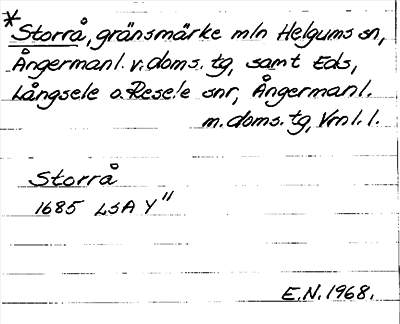 * Storrå, gränsmärke mln Helgums sn,
Ångermanl. v. doms. tg, samt Eds,
Långsele o. Resele snr, Ångermanl.
m. doms. tg, Vrnl. l.
Storrå
1685 LSA Y"
E.N. 1968.